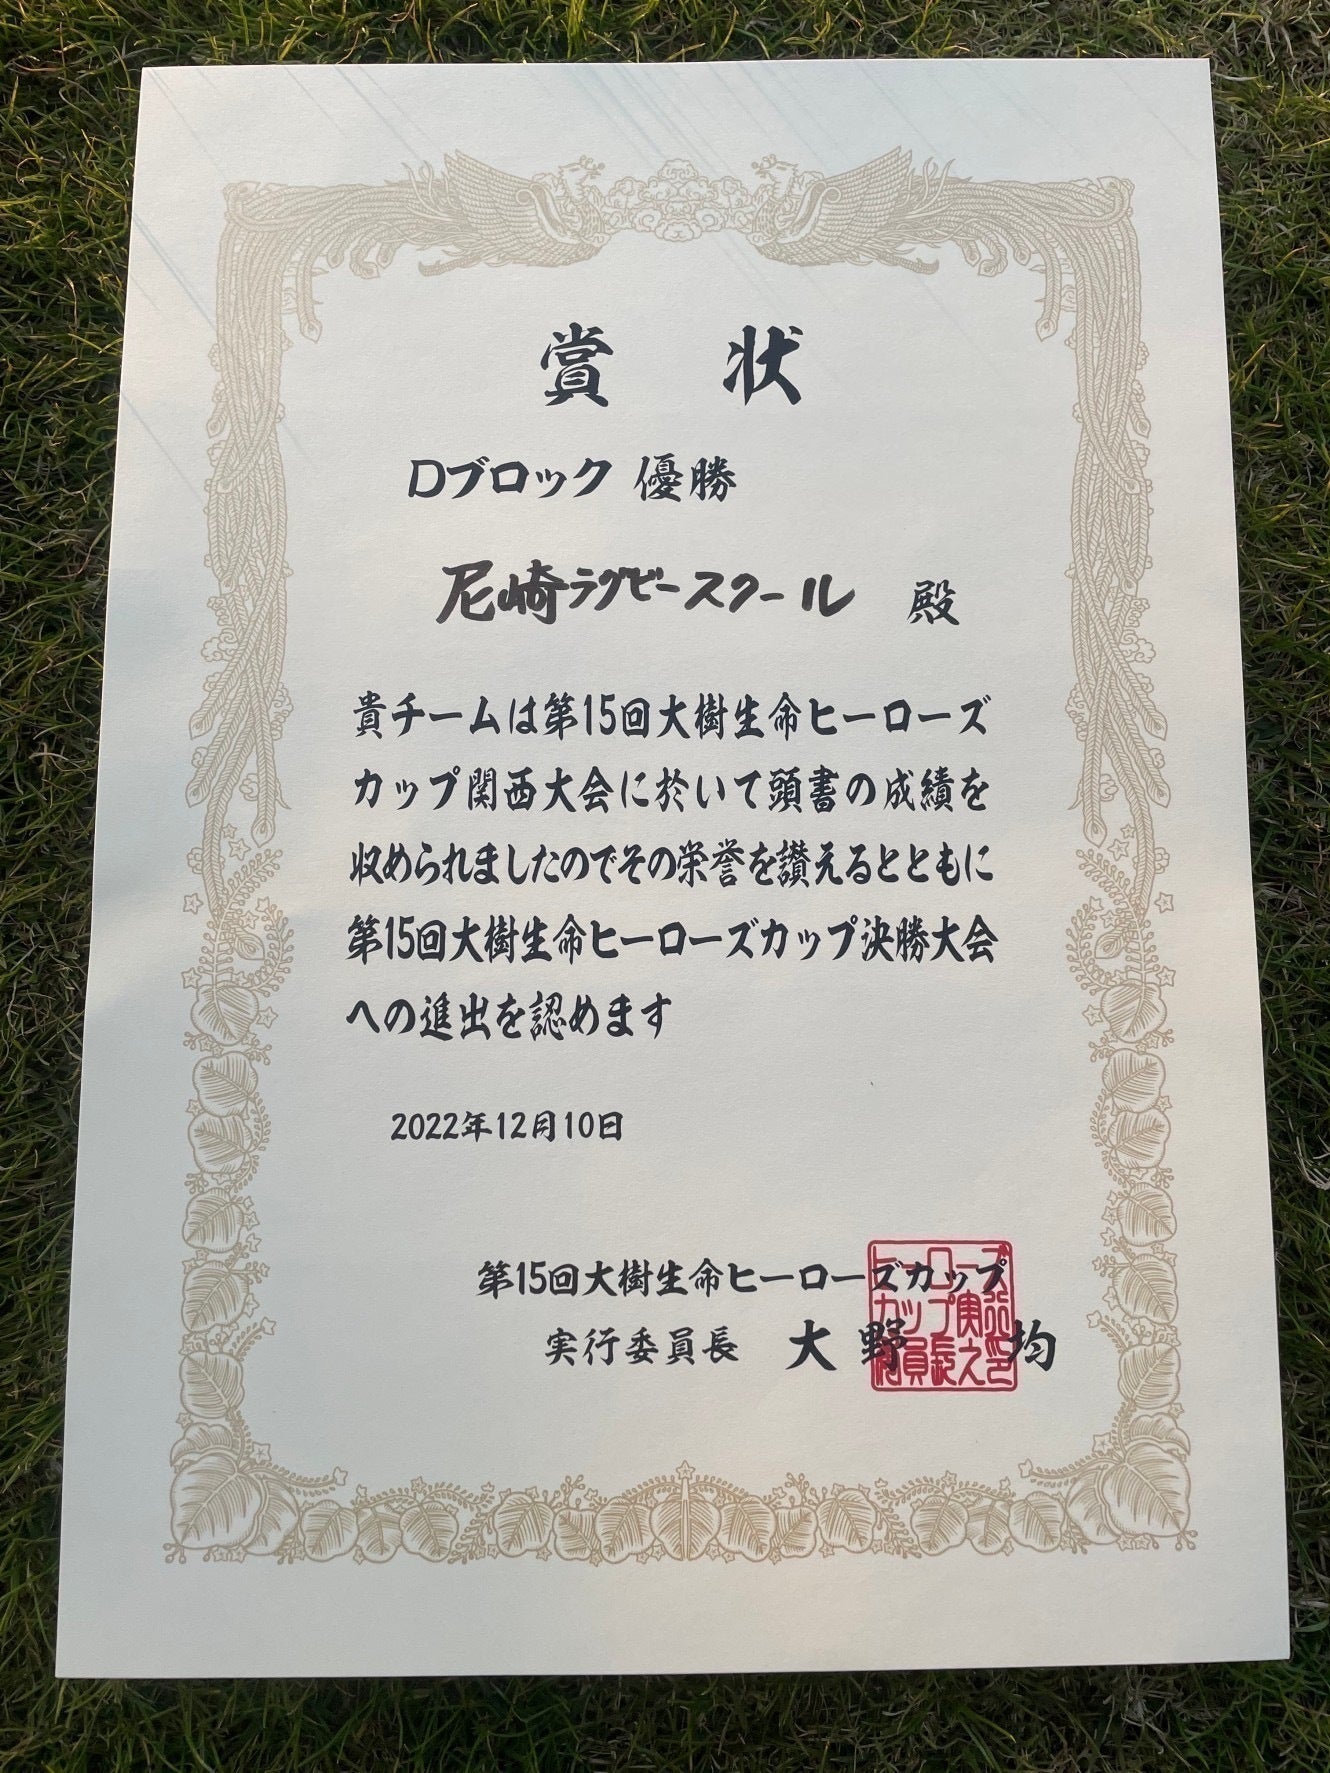 賞 状
Dブロック 優勝
尼崎ラグビースクール 殿
貴チームは第15回大樹生命ヒーローズ
カップ関西大会に於いて頭書の成績を
収められましたのでその栄誉を讃えるとともに
第15回大樹生命ヒーローズカップ決勝大会
への進出を認めます
2022年12月10日
第15回大樹生命ヒーローズカップ
実行委員長 大野 均
ヒーローズ
カップ実行
委員長之印